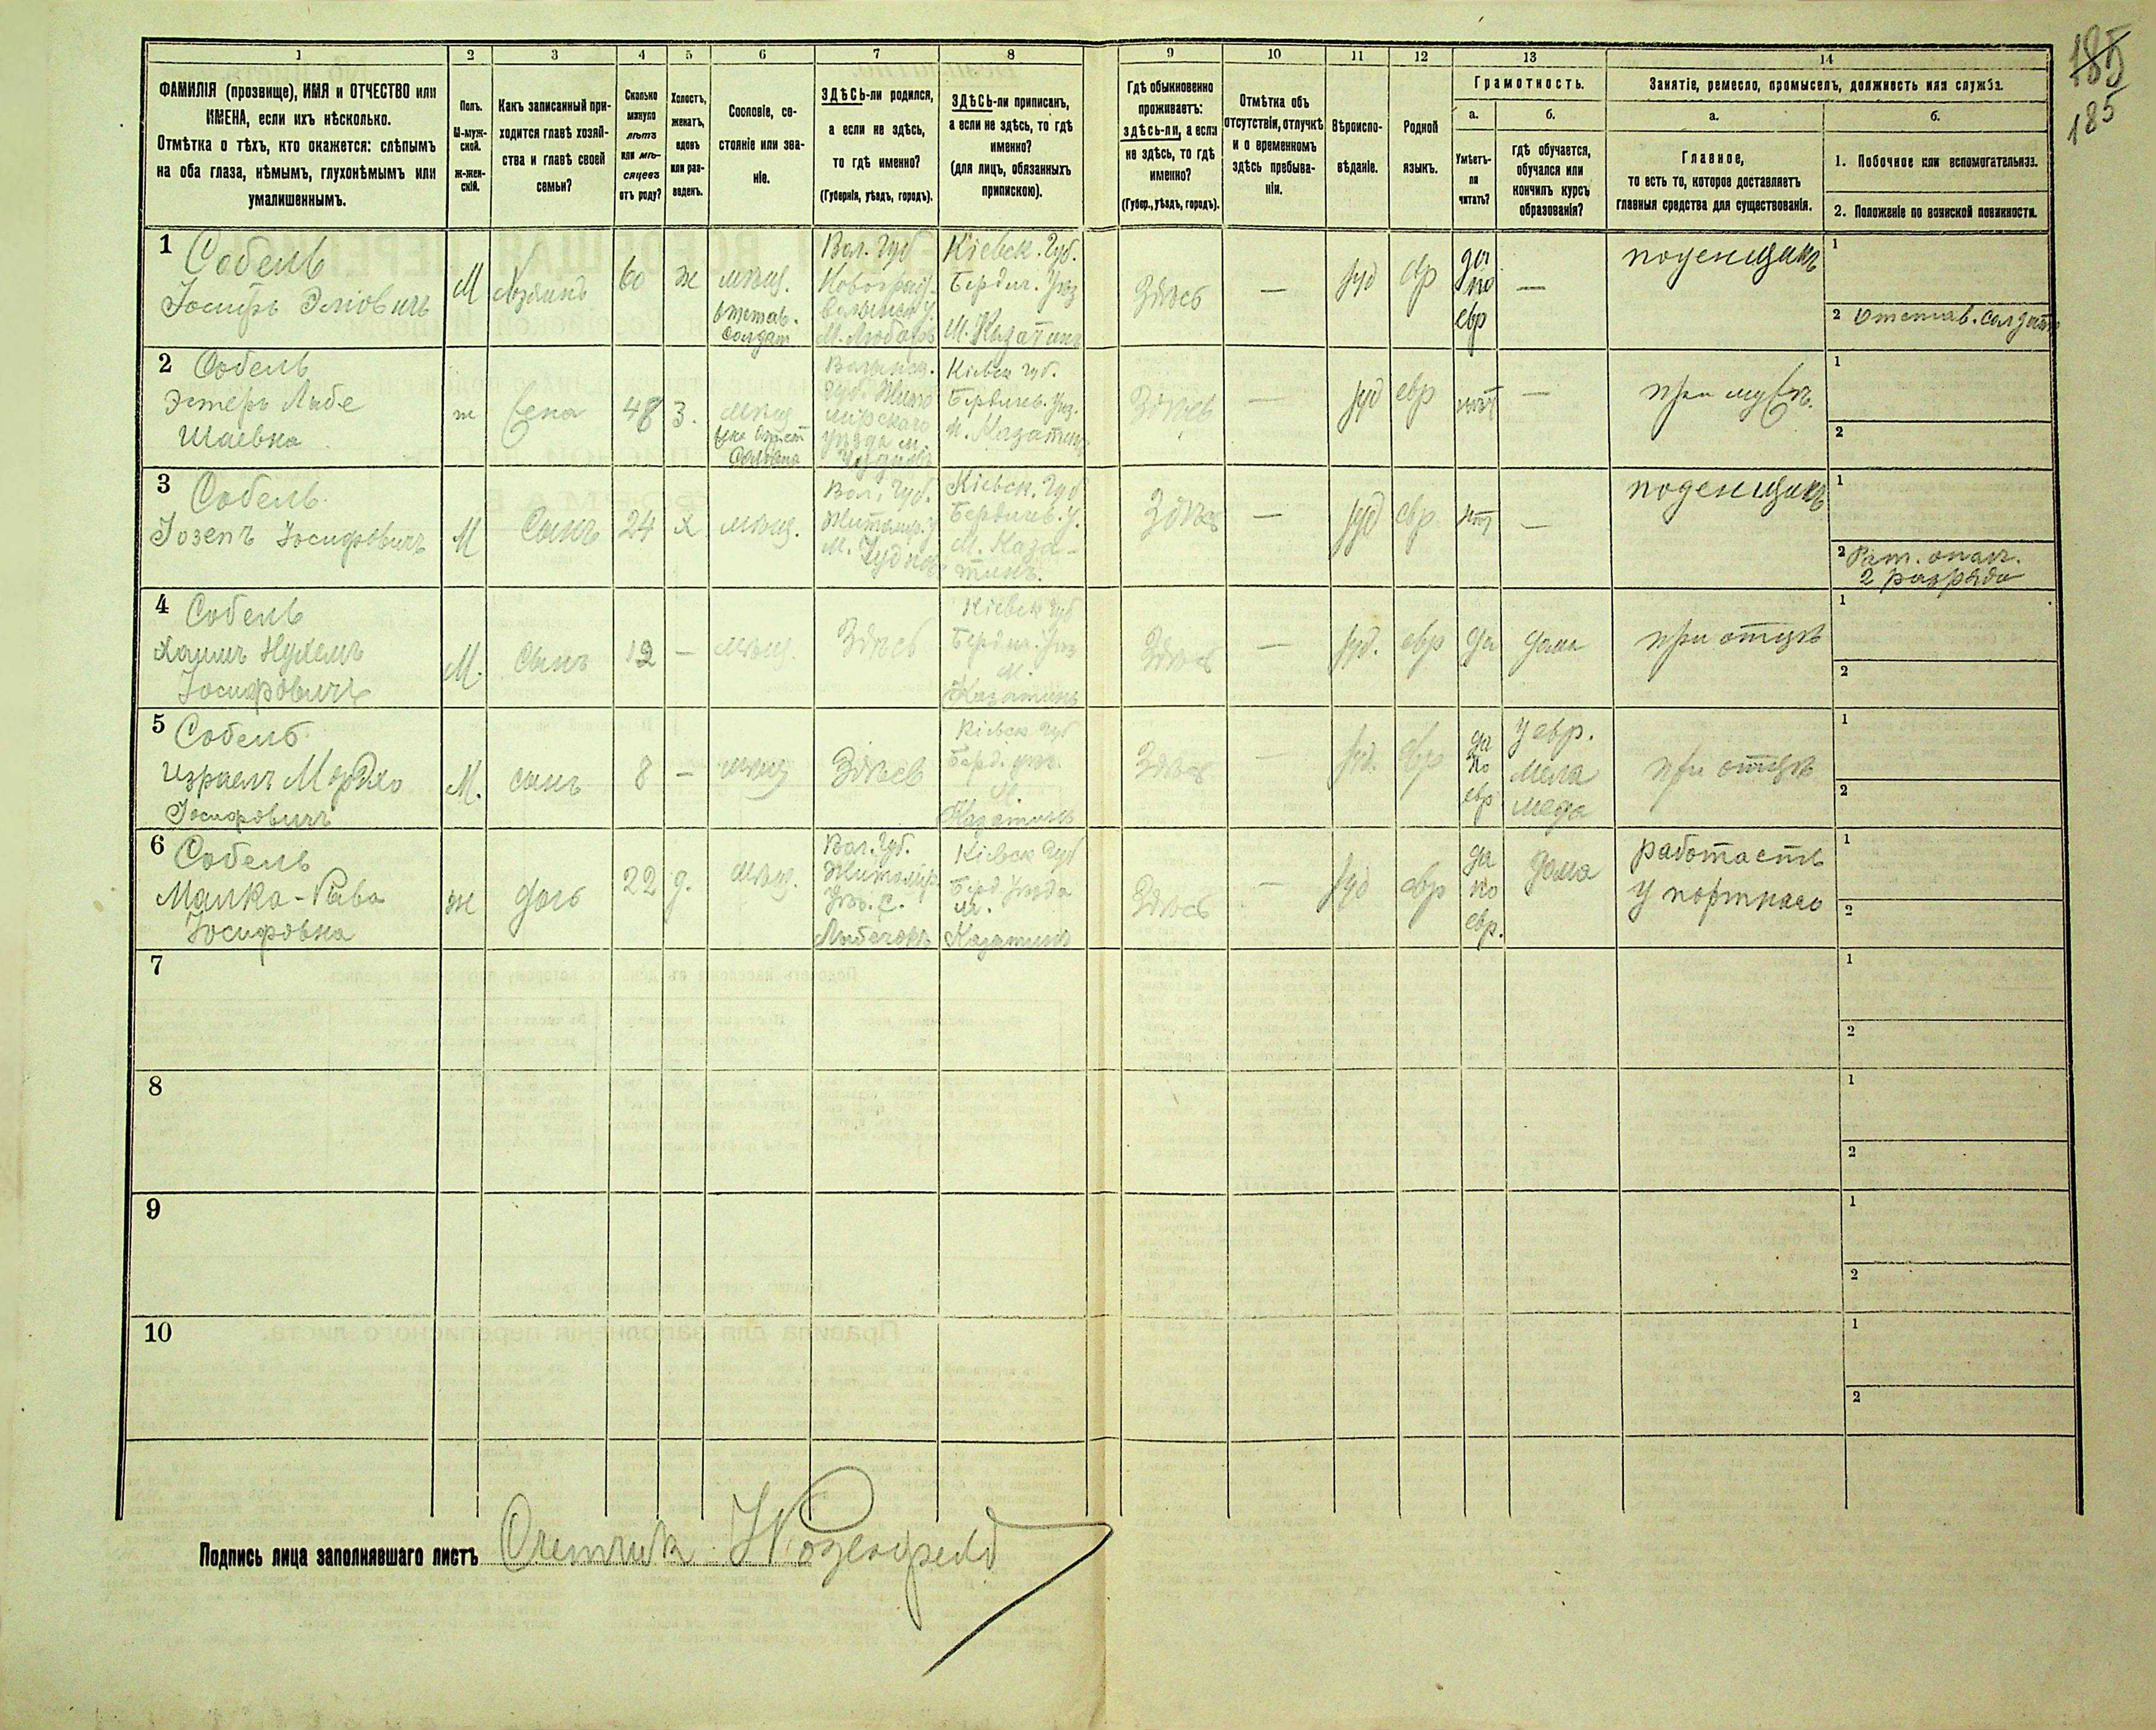 185
185
1
2
3
4
5
6
7
8
9
10
11
12
13
14
ФАМИЛІЯ (прозвище), ИМЯ и ОТЧЕСТВО или
ИМЕНА, если ихъ нѣсколько.
Отмѣтка о тѣхъ, кто окажется: слѣпымъ
на оба глаза, нѣмымъ, глухонѣмымъ или
умалишеннымъ.
Полъ.
М-муж-
ской.
Ж-жен-
скій.
Какъ записанный при-
ходится главѣ хозяй-
ства и главѣ своей
семьи?
Сколько
минуло
лѣтъ
или мѣ-
сяцевъ
отъ роду?
Холостъ,
женатъ,
вдовъ
или раз-
веденъ.
Сословіе, со-
стояніе или зва-
ніе.
ЗДѢСЬ-ли родился,
а если не здѣсь,
то гдѣ именно?
(Губернія, уѣздъ, городъ).
ЗДѢСЬ-ли приписанъ,
а если не здѣсь, то гдѣ
именно?
(для лицъ, обязанныхъ
припискою).
Гдѣ обыкновенно
проживаетъ:
здѣсь-ли, а если
не здѣсь, то гдѣ
именно?
(Губер., уѣздъ, городъ).
Отмѣтка объ
отсутствіи, отлучкѣ
и о временномъ
здѣсь пребыва-
ніи.
Вѣроиспо-
вѣданіе.
Родной
языкъ.
Грамотность.
а.
Умѣетъ-
ли
читать?
б.
гдѣ обучается,
обучался или
кончилъ курсъ
образованія?
Занятіе, ремесло, промыселъ, должность или служба.
а.
Главное,
то есть то, которое доставляетъ
главныя средства для существованія.
б.
1. Побочное или вспомогательное.
2. Положеніе по воинской повинности.
1 Собель
Іосифъ Эліовичъ
М
Хозяинъ
60
ж
мѣщ.
отстав.
солдат
Вол. Губ
Новоград-
Волынск у.
М. Любаръ
Кіевск. Губ.
Бердич. Уѣз
М. Казатинъ
Здѣсь
—
іуд
евр
да
по
евр
—
поденщикъ
1
2 Отстав. солдатъ
2 Собель
Эстеръ Либе
Шаевна
ж
жена
48
З.
мѣщ
Волынск.
Губ. Жито
мирского
уѣзда м.
Чудновъ
Кіевск Губ.
Бердичев. Уѣз.
м. Казатинъ
Здѣсь
—
іуд
евр
нѣт
—
при мужѣ.
1
2
3 Собель
Іозепъ Іосифовичъ
М
Сынъ
24
х
мѣщ.
Вол. Губ.
Житомір. у
м. Чудновъ
Кіевск. Губ
Бердичев. у.
м. Каза-
тинъ.
Здѣсь
—
іуд
евр.
нѣт
—
поденщикъ
1
2 Рат. опол.
2 разряда
4 Собель
Хаимъ Нухемъ
Іосифовичъ
М.
Сынъ
12
—
мѣщ.
Здѣсь
Кіевск Губ
Бердич. Уѣз
м.
Казатинъ
Здѣсь
—
іуд.
евр
да
дома
при отцѣ
1
2
5 Собель
Израель Мордко
Іосифовичъ
М.
сынъ
8
—
мѣщ
Здѣсь
Кіевск Губ
Берд. уѣз.
м.
Казатинъ
Здѣсь
—
іуд.
евр
да
по
евр
у евр.
мела
меда
при отцѣ
1
2
6 Собель
Малка-Рива
Іосифовна
ж
дочь
22
д.
мѣщ.
Вол. Губ.
Житомір
Уѣз. с.
Кіевск Губ
Берд. Уѣзда
м.
Казатинъ
Здѣсь
—
іуд
евр
да
по
евр.
дома
работаетъ
у портного
1
2
7
1
2
8
1
2
9
1
2
10
1
2
Подпись лица заполнявшаго листъ Счетчик Розенфельд